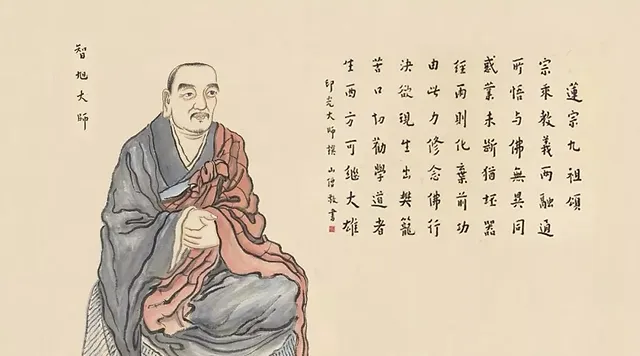 蓮宗九祖頌
宗乘教義兩融通
所悟與佛無異同
惑業未斷猶坯器
經雨則化棄前功
由此力修念佛行
決欲現生出樊籠
苦口切勸學道者
生西方可繼大雄
印光大師撰 山僧敬書
智旭大師